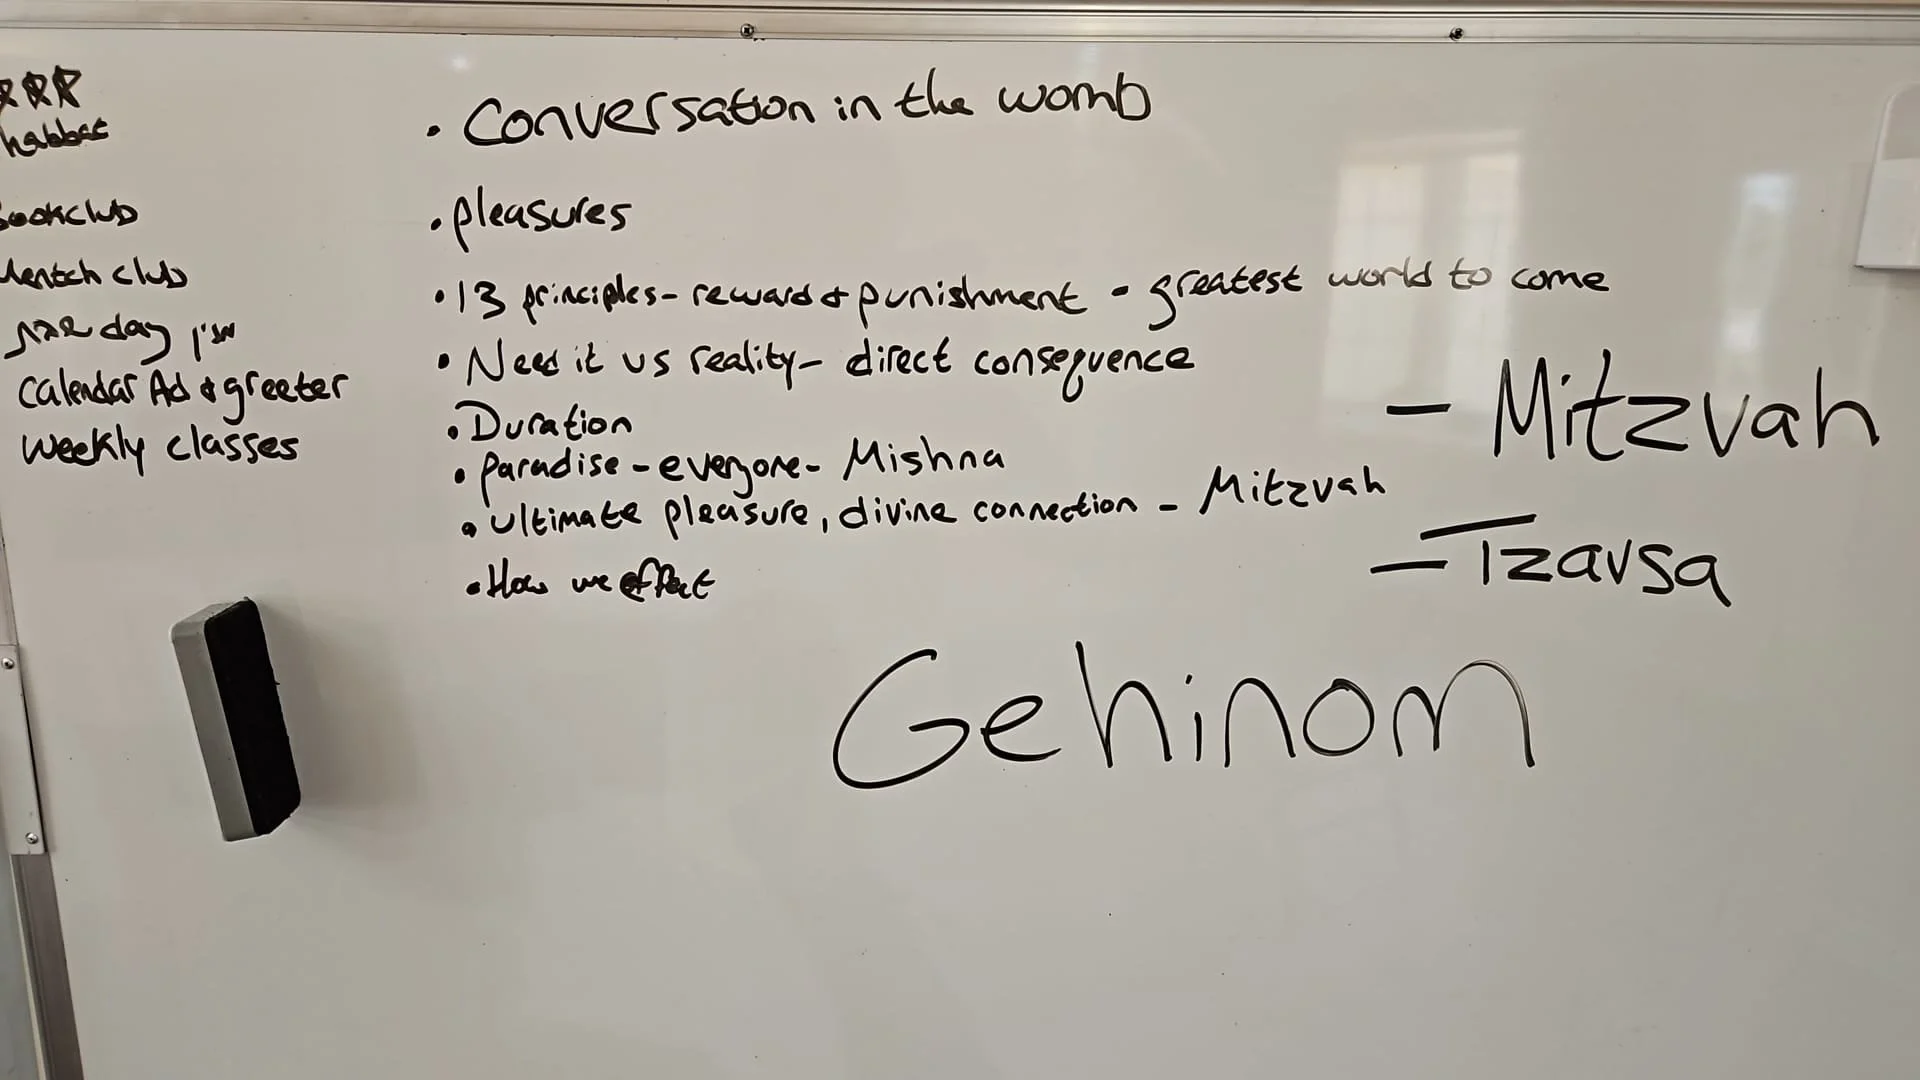 habbat
ookclub
Mentch club
day
Calendar Ad & greeter
weekly classes
• Conversation in the womb
• pleasures
• 13 principles - reward & punishment - greatest world to come
• Need it us reality - direct consequence
• Duration
• paradise - everyone - Mishna
• ultimate pleasure, divine connection - Mitzvah
• How we effect
- Mitzvah
- Tzavsa
Gehinom